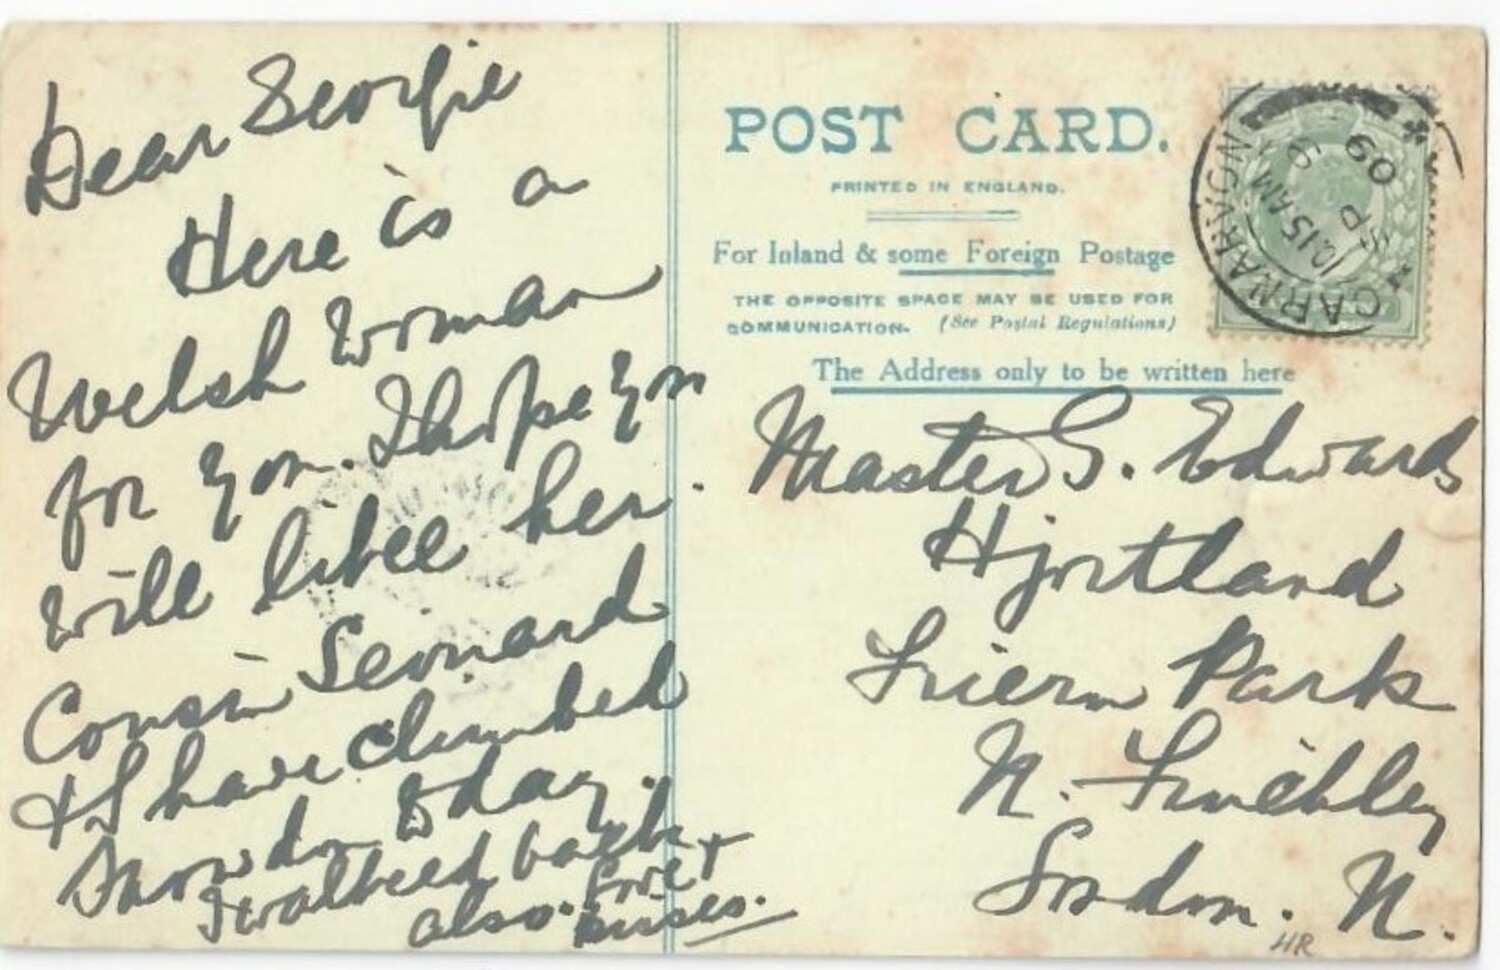 Dear Georgie
Here is a
Welsh Woman
for you. I hope you
will like her.
Cousin Leonard
& I have climbed
Snowdon today.
I walked back
also. Love &
kisses.
POST CARD.
PRINTED IN ENGLAND.
For Inland & some Foreign Postage
THE OPPOSITE SPACE MAY BE USED FOR
COMMUNICATION. (See Postal Regulations)
The Address only to be written here
CARNARVON
10.15 AM
9
SP
09
Master G. Edwards
Hjortland
Friern Park
N. Finchley
London. N.
HR